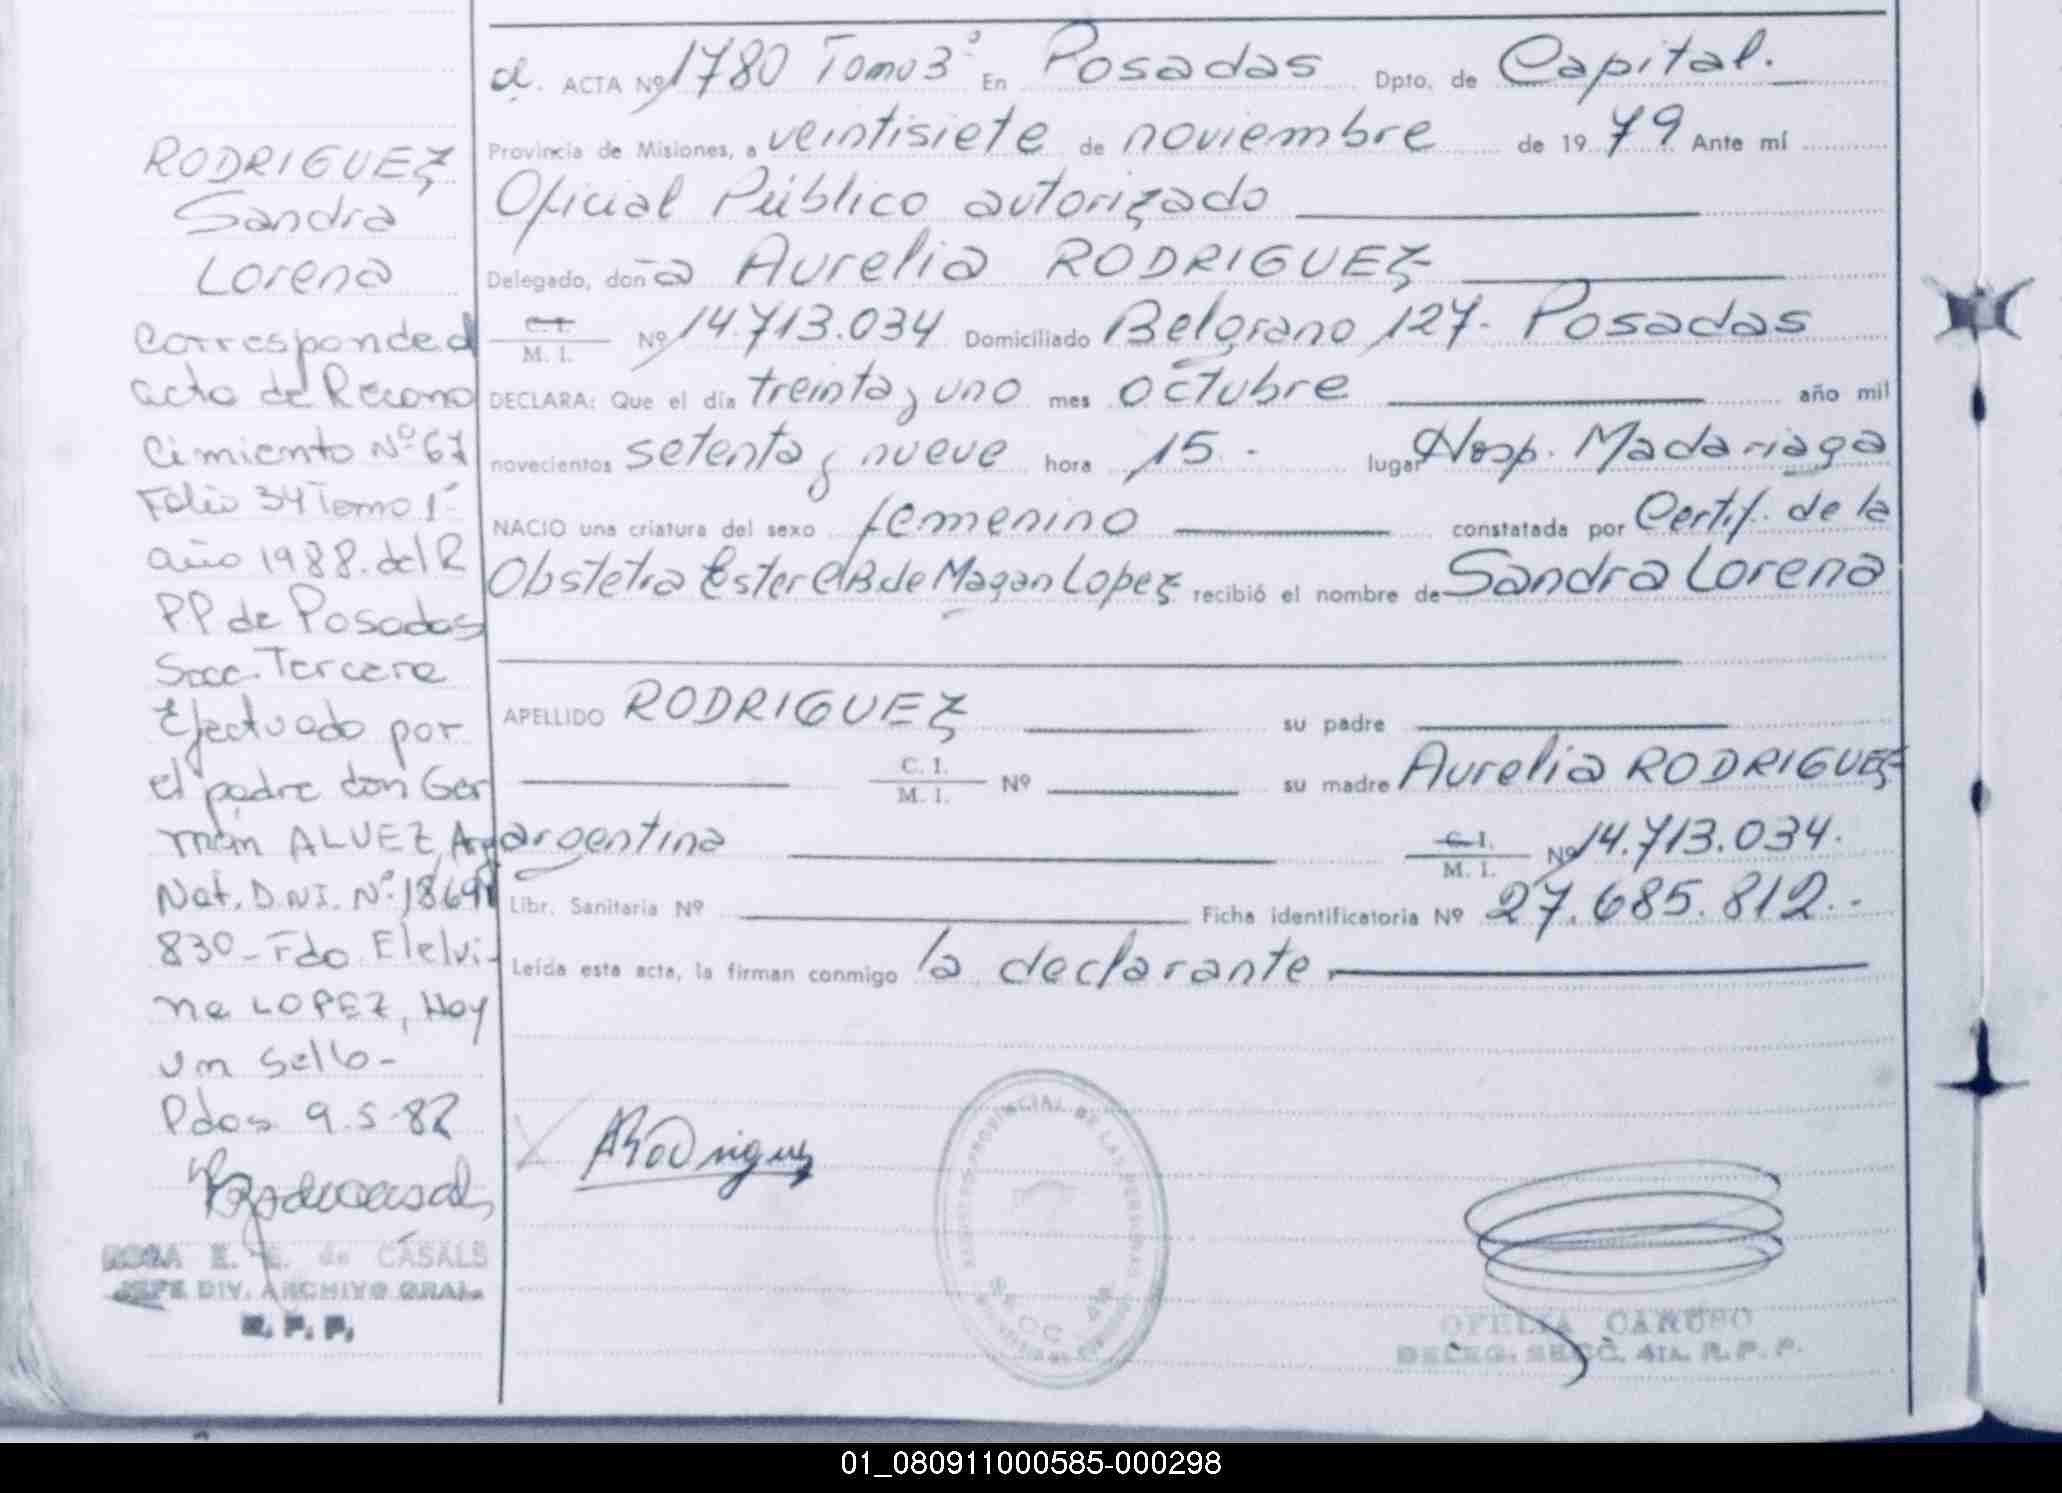 a. ACTA Nº 1780 Tomo 3º En Posadas Dpto. de Capital.
Provincia de Misiones, a veintisiete de noviembre de 1979 Ante mí
Oficial Público autorizado
Delegado, doña Aurelia RODRIGUEZ
C. I.
M. I. Nº 14.713.034 Domiciliado Belgrano 127. Posadas
DECLARA: Que el día treinta y uno mes octubre año mil
novecientos setenta y nueve hora 15. lugar Hosp. Madariaga
NACIO una criatura del sexo femenino constatada por Certif. de la
Obstetra Ester de Magan Lopez recibió el nombre de Sandra Lorena
APELLIDO RODRIGUEZ su padre
C. I.
M. I. Nº su madre Aurelia RODRIGUEZ
argentina C. I.
M. I. Nº 14.713.034.
Libr. Sanitaria Nº Ficha identificatoria Nº 27.685.812.-
Leída esta acta, la firman conmigo la declarante
RODRIGUEZ
Sandra
Lorena
Corresponde al
acta de Recono
cimiento Nº 67
Folio 34 Tomo 1º
año 1988. del R
PP de Posadas
Secc. Tercera
Efectuado por
el padre don Ger
mán ALVEZ, Arg
Nat. D.N.I. Nº 18691
830- Fdo. Elelvi-
na LOPEZ, Hay
un sello-
Pdas 9.5.82
ROSA E. de CASALS
JEFE DIV. ARCHIVO GRAL.
R. P. P.
ARodriguez
REGISTRO PROVINCIAL DE LAS PERSONAS
SECC. 4ta.
OFELIA CARUSO
DELEG. SECC. 4ta. R. P. P.
01_080911000585-000298